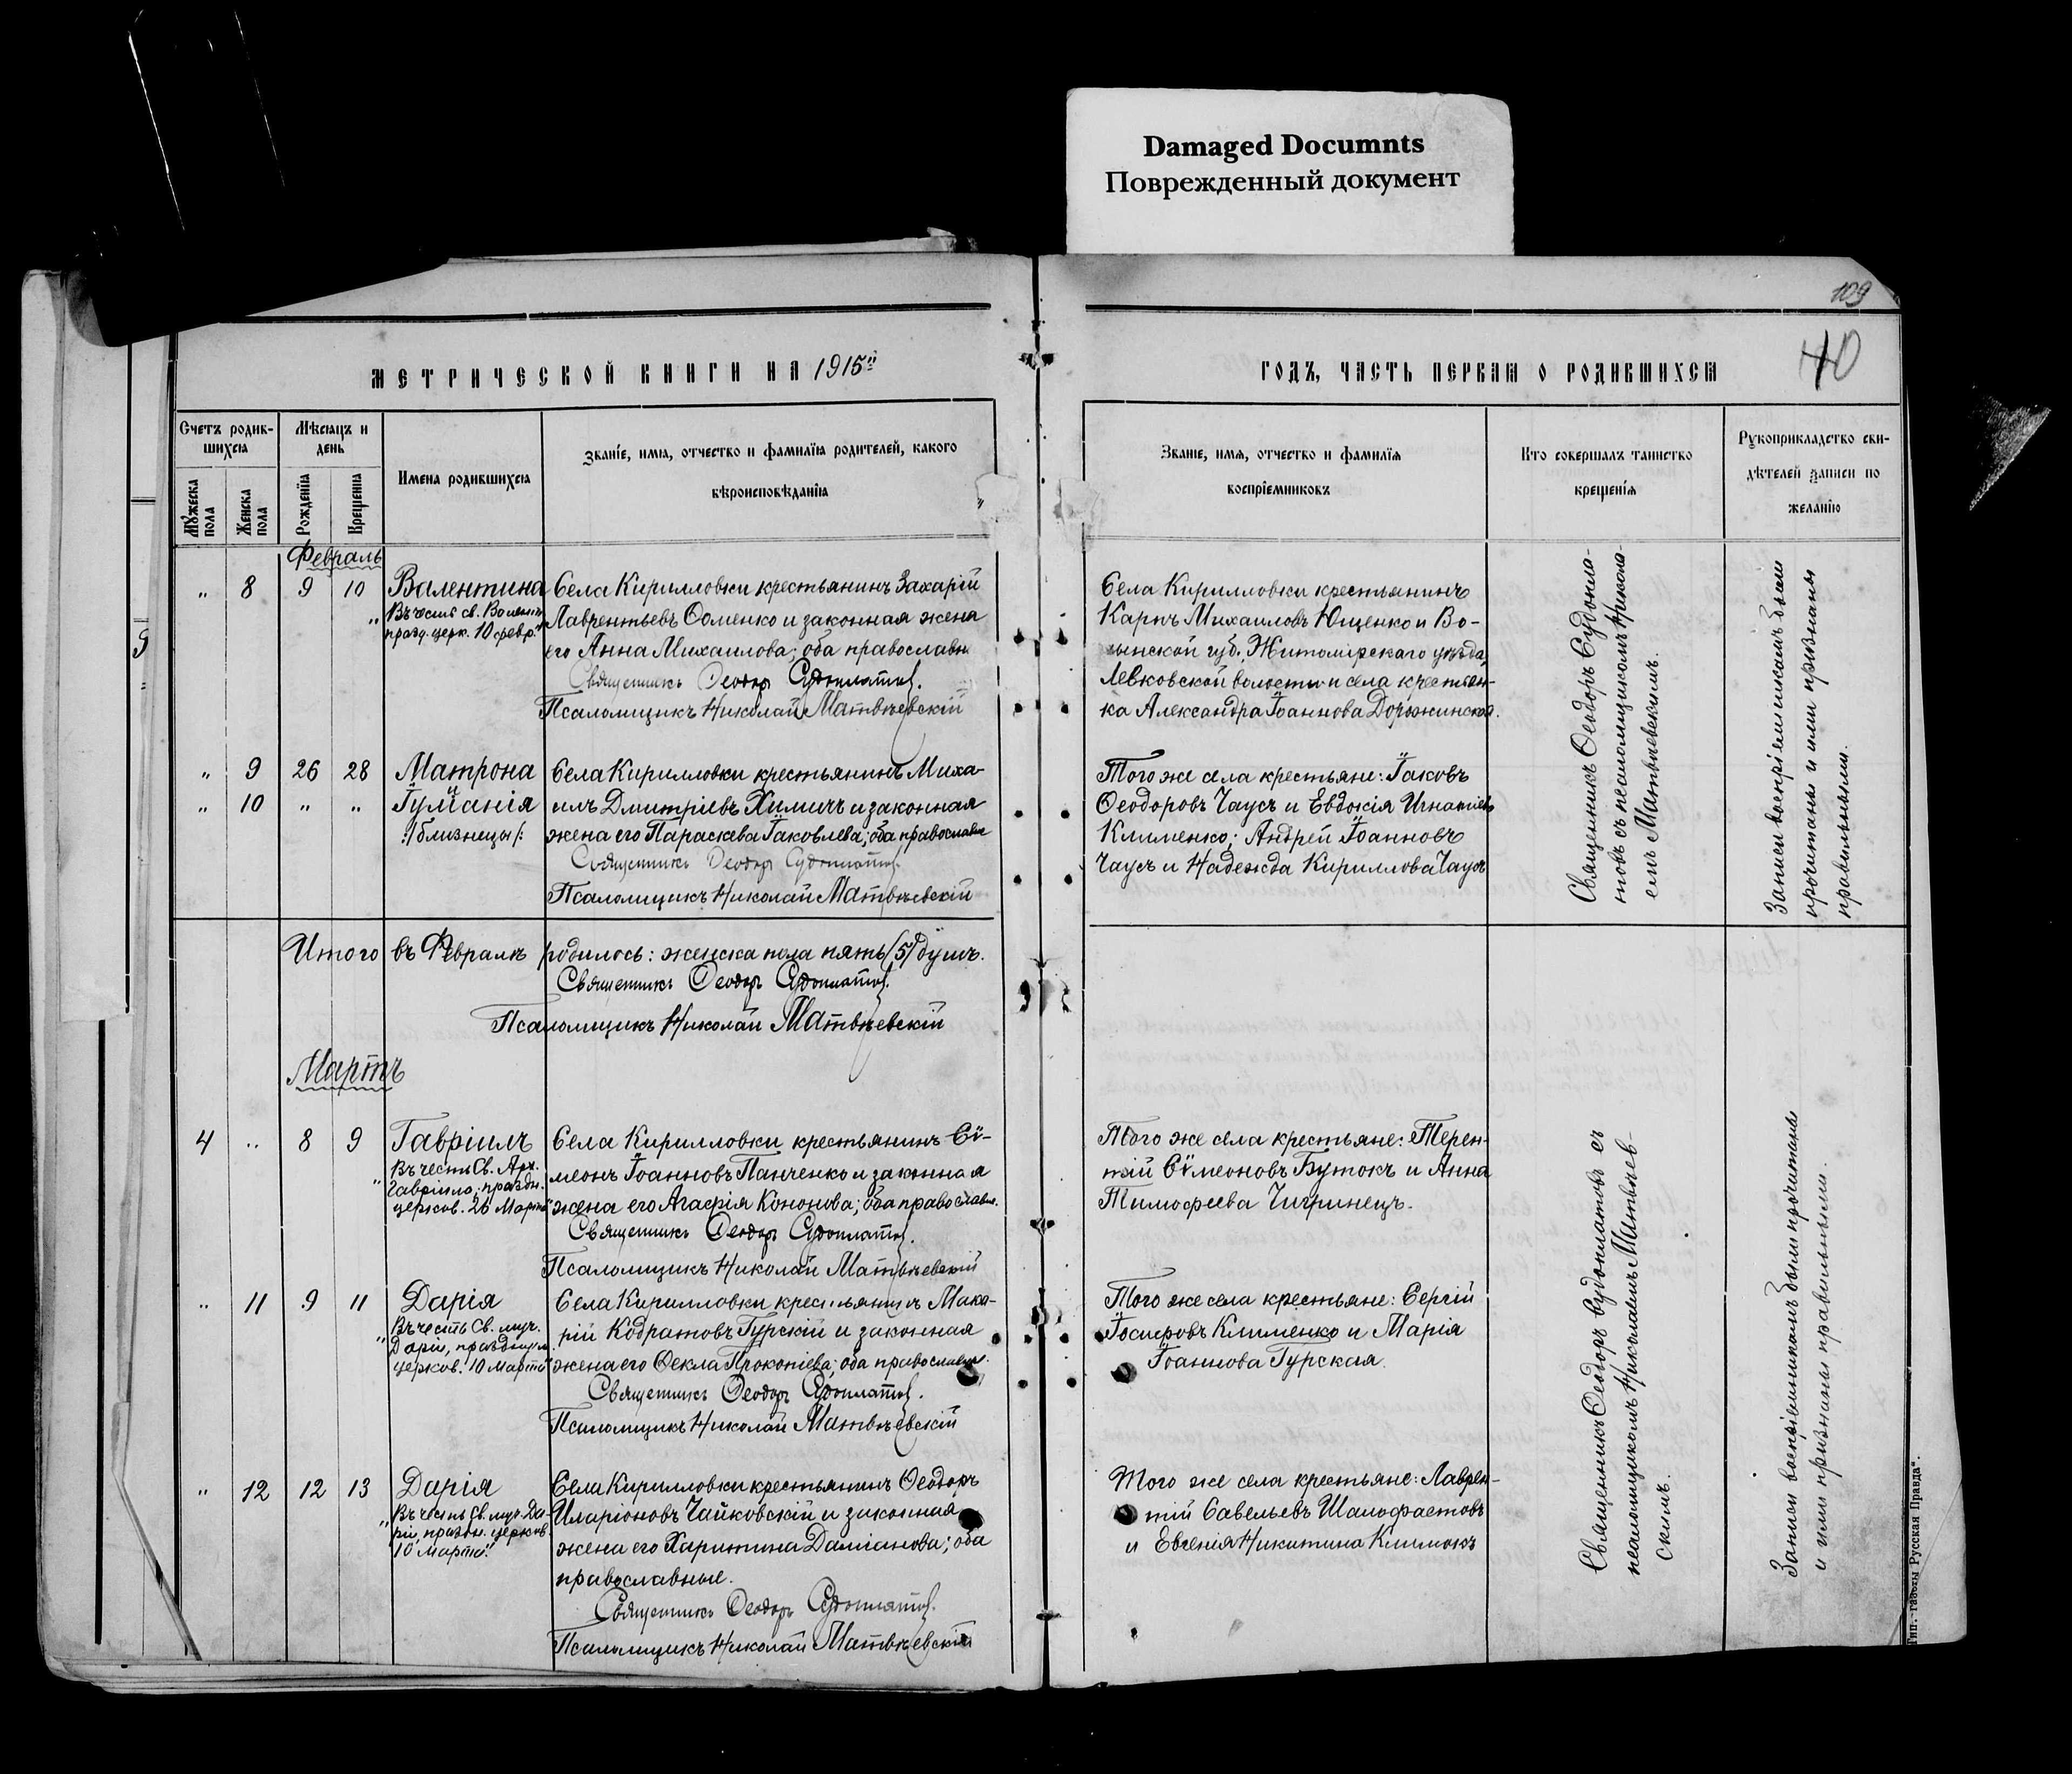 Damaged Documnts
Поврежденный документ
109
40
МЕТРИЧЕСКОЙ КНИГИ НА 1915й
ГОДЪ, ЧАСТЬ ПЕРВАЯ О РОДИВШИХСЯ
Счетъ родив-
шихся
Мужеска пола
Женска пола
Мѣсяцъ и
день
Рожденія
Крещенія
Имена родившихся
Званіе, имя, отчество и фамилія родителей, какого
вѣроисповѣданія
Званіе, имя, отчество и фамилія
воспріемниковъ
Кто совершалъ таинство
крещенія
Рукоприкладство сви-
дѣтелей записи по
желанію
Февраль
„ 8 9 10 Валентина
„Въ честь св. Валент.
празд. церк. 10 февр."
Села Кирилловки крестьянинъ Захарій
Лаврентьевъ Фоменко и законная жена
его Анна Михаилова; оба православн
Священникъ Ѳеодоръ Судоплатов.
Псаломщикъ Николай Матвѣевскій
Села Кирилловки крестьянинъ
Карпъ Михаиловъ Ющенко и Во-
лынской губ., Житомірскаго уѣзда,
Левковской волости и села крестьян-
ка Александра Іоаннова Дорожинская.
„ 9 26 28 Матрона
и
„ 10 „ „ Іуліанія
:/близнецы/:
Села Кирилловки крестьянинъ Миха-
илъ Дмитріевъ Химичъ и законная
жена его Параскева Іаковлева; оба православные
Священникъ Ѳеодоръ Судоплатов.
Псаломщикъ Николай Матвѣевскій
Того же села крестьяне: Іаковъ
Ѳеодоровъ Чаусъ и Евдокія Игнатіева
Клименко; Андрей Іоанновъ
Чаусъ и Надежда Кириллова Чаусъ
Священникъ Ѳеодоръ Судопла-
товъ съ псаломщикомъ Никола-
емъ Матвѣевскимъ.
Записи воспріемникамъ были
прочитаны и ими признаны
правильными.
Итого въ Февралѣ родилось: женска пола пять (5) душъ.
Священникъ Ѳеодоръ Судоплатов.
Псаломщикъ Николай Матвѣевскій
Мартъ
4 „ 8 9 Гавріилъ
„Въ честь Св. Арх.
Гавріила; праздн.
церков. 26 Марта"
Села Кирилловки крестьянинъ Сѵ-
меонъ Іоанновъ Панченко и законная
жена его Агафія Кононова; оба православн.
Священникъ Ѳеодоръ Судоплатов.
Псаломщикъ Николай Матвѣевскій
Того же села крестьяне: Терен-
тій Сѵмеоновъ Бутокъ и Анна
Тимофеева Чигринецъ.
„ 11 9 11 Дарія
„Въ честь Св. муч.
Даріи, празднуем.
церков. 10 Марта"
Села Кирилловки крестьянинъ Мака-
рій Кодратовъ Гурскій и законная
жена его Ѳекла Прокопіева; оба православные.
Священникъ Ѳеодоръ Судоплатов.
Псаломщикъ Николай Матвѣевскій
Того же села крестьяне: Сергій
Іосифовъ Клименко и Марія
Іоаннова Гурская.
„ 12 12 13 Дарія
„Въ честь Св. муч. Да-
ріи, праздн. церков.
10 Марта."
Села Кирилловки крестьянинъ Ѳеодоръ
Иларіоновъ Чайковскій и законная
жена его Харитина Даміанова; оба
православные.
Священникъ Ѳеодоръ Судоплатов.
Псаломщикъ Николай Матвѣевскій
Того же села крестьяне: Лаврен-
тій Савельевъ Шалофастовъ
и Евгенія Никитина Климокъ
Священникъ Ѳеодоръ Судоплатовъ съ
псаломщикомъ Николаемъ Матвѣев-
скимъ.
Записи воспріемникамъ были прочитаны
и ими признаны правильными.
Тип. газеты „Русская Правда".